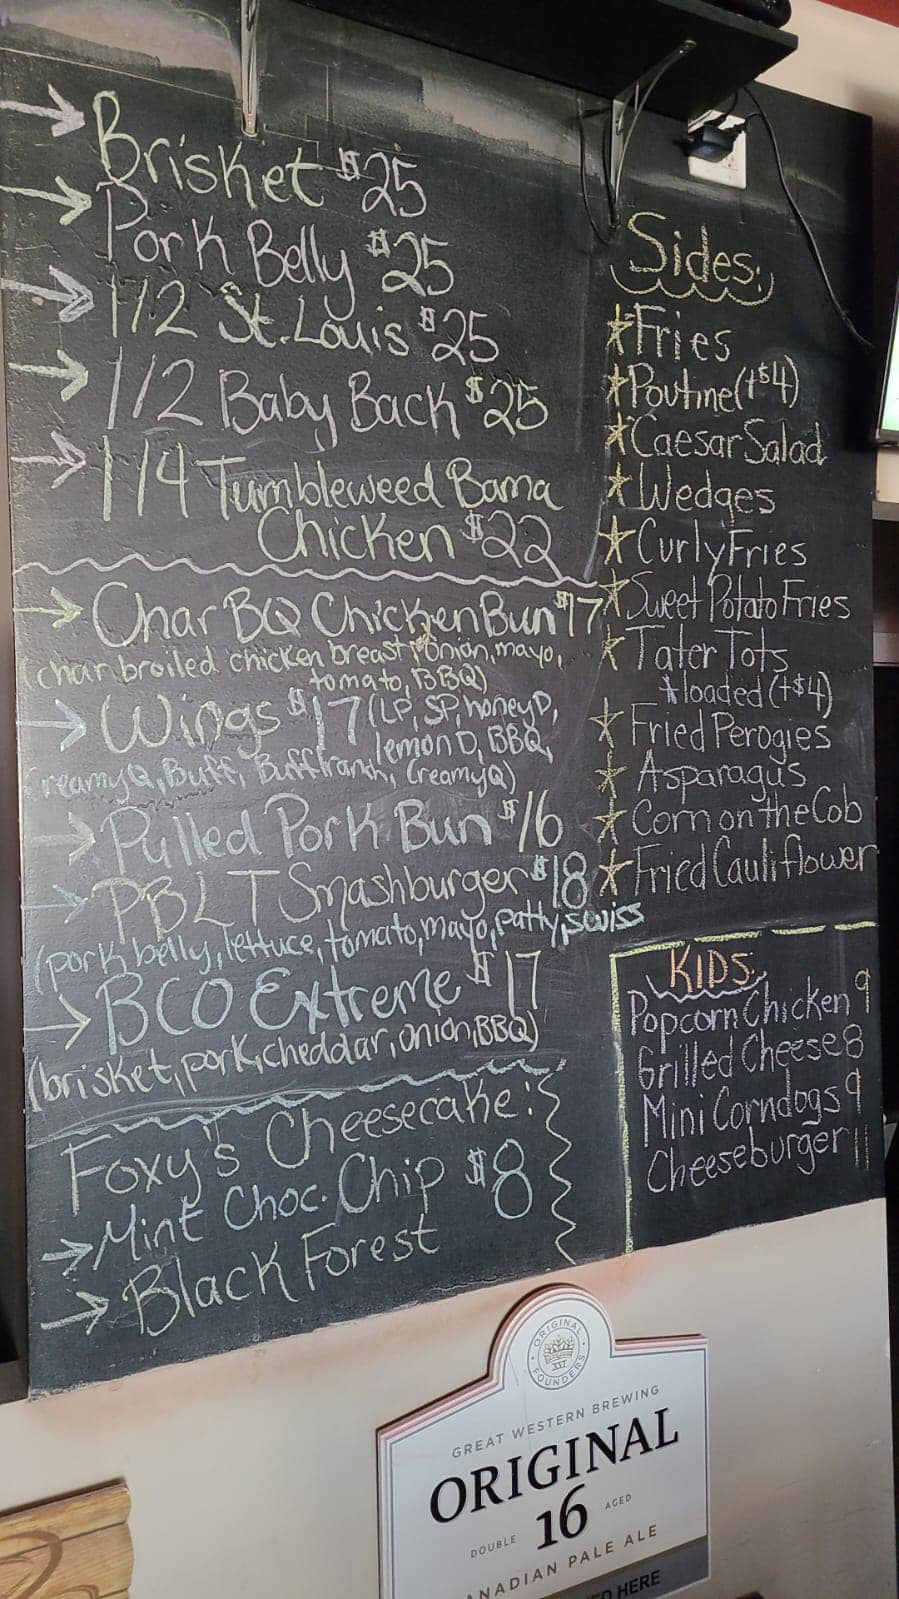 Brisket $25
Pork Belly $25
1/2 St. Louis $25
1/2 Baby Back $25
1/4 Tumbleweed Bama
Chicken $22
Char BQ Chicken Bun $17
(char broiled chicken breast, onion, mayo,
tomato, BBQ)
Wings $17 (LP, SP, honey D,
lemon D, BBQ,
CreamyQ, Buff, Buff ranch, CreamyQ)
Pulled Pork Bun $16
PBLT Smashburger $18
(pork belly, lettuce, tomato, mayo, patty, swiss
BCO Extreme $17
(brisket, pork, cheddar, onion, BBQ)
Foxy's Cheesecake:
Mint Choc. Chip $8
Black Forest
Sides:
Fries
Poutine (+$4)
Caesar Salad
Wedges
Curly Fries
Sweet Potato Fries
Tater Tots
*loaded (+$4)
Fried Perogies
Asparagus
Corn on the Cob
Fried Cauliflower
KIDS:
Popcorn Chicken 9
Grilled Cheese 8
Mini Corndogs 9
Cheeseburger 11
ORIGINAL
FOUNDERS
GREAT WESTERN BREWING
ORIGINAL
DOUBLE 16 AGED
CANADIAN PALE ALE
HERE